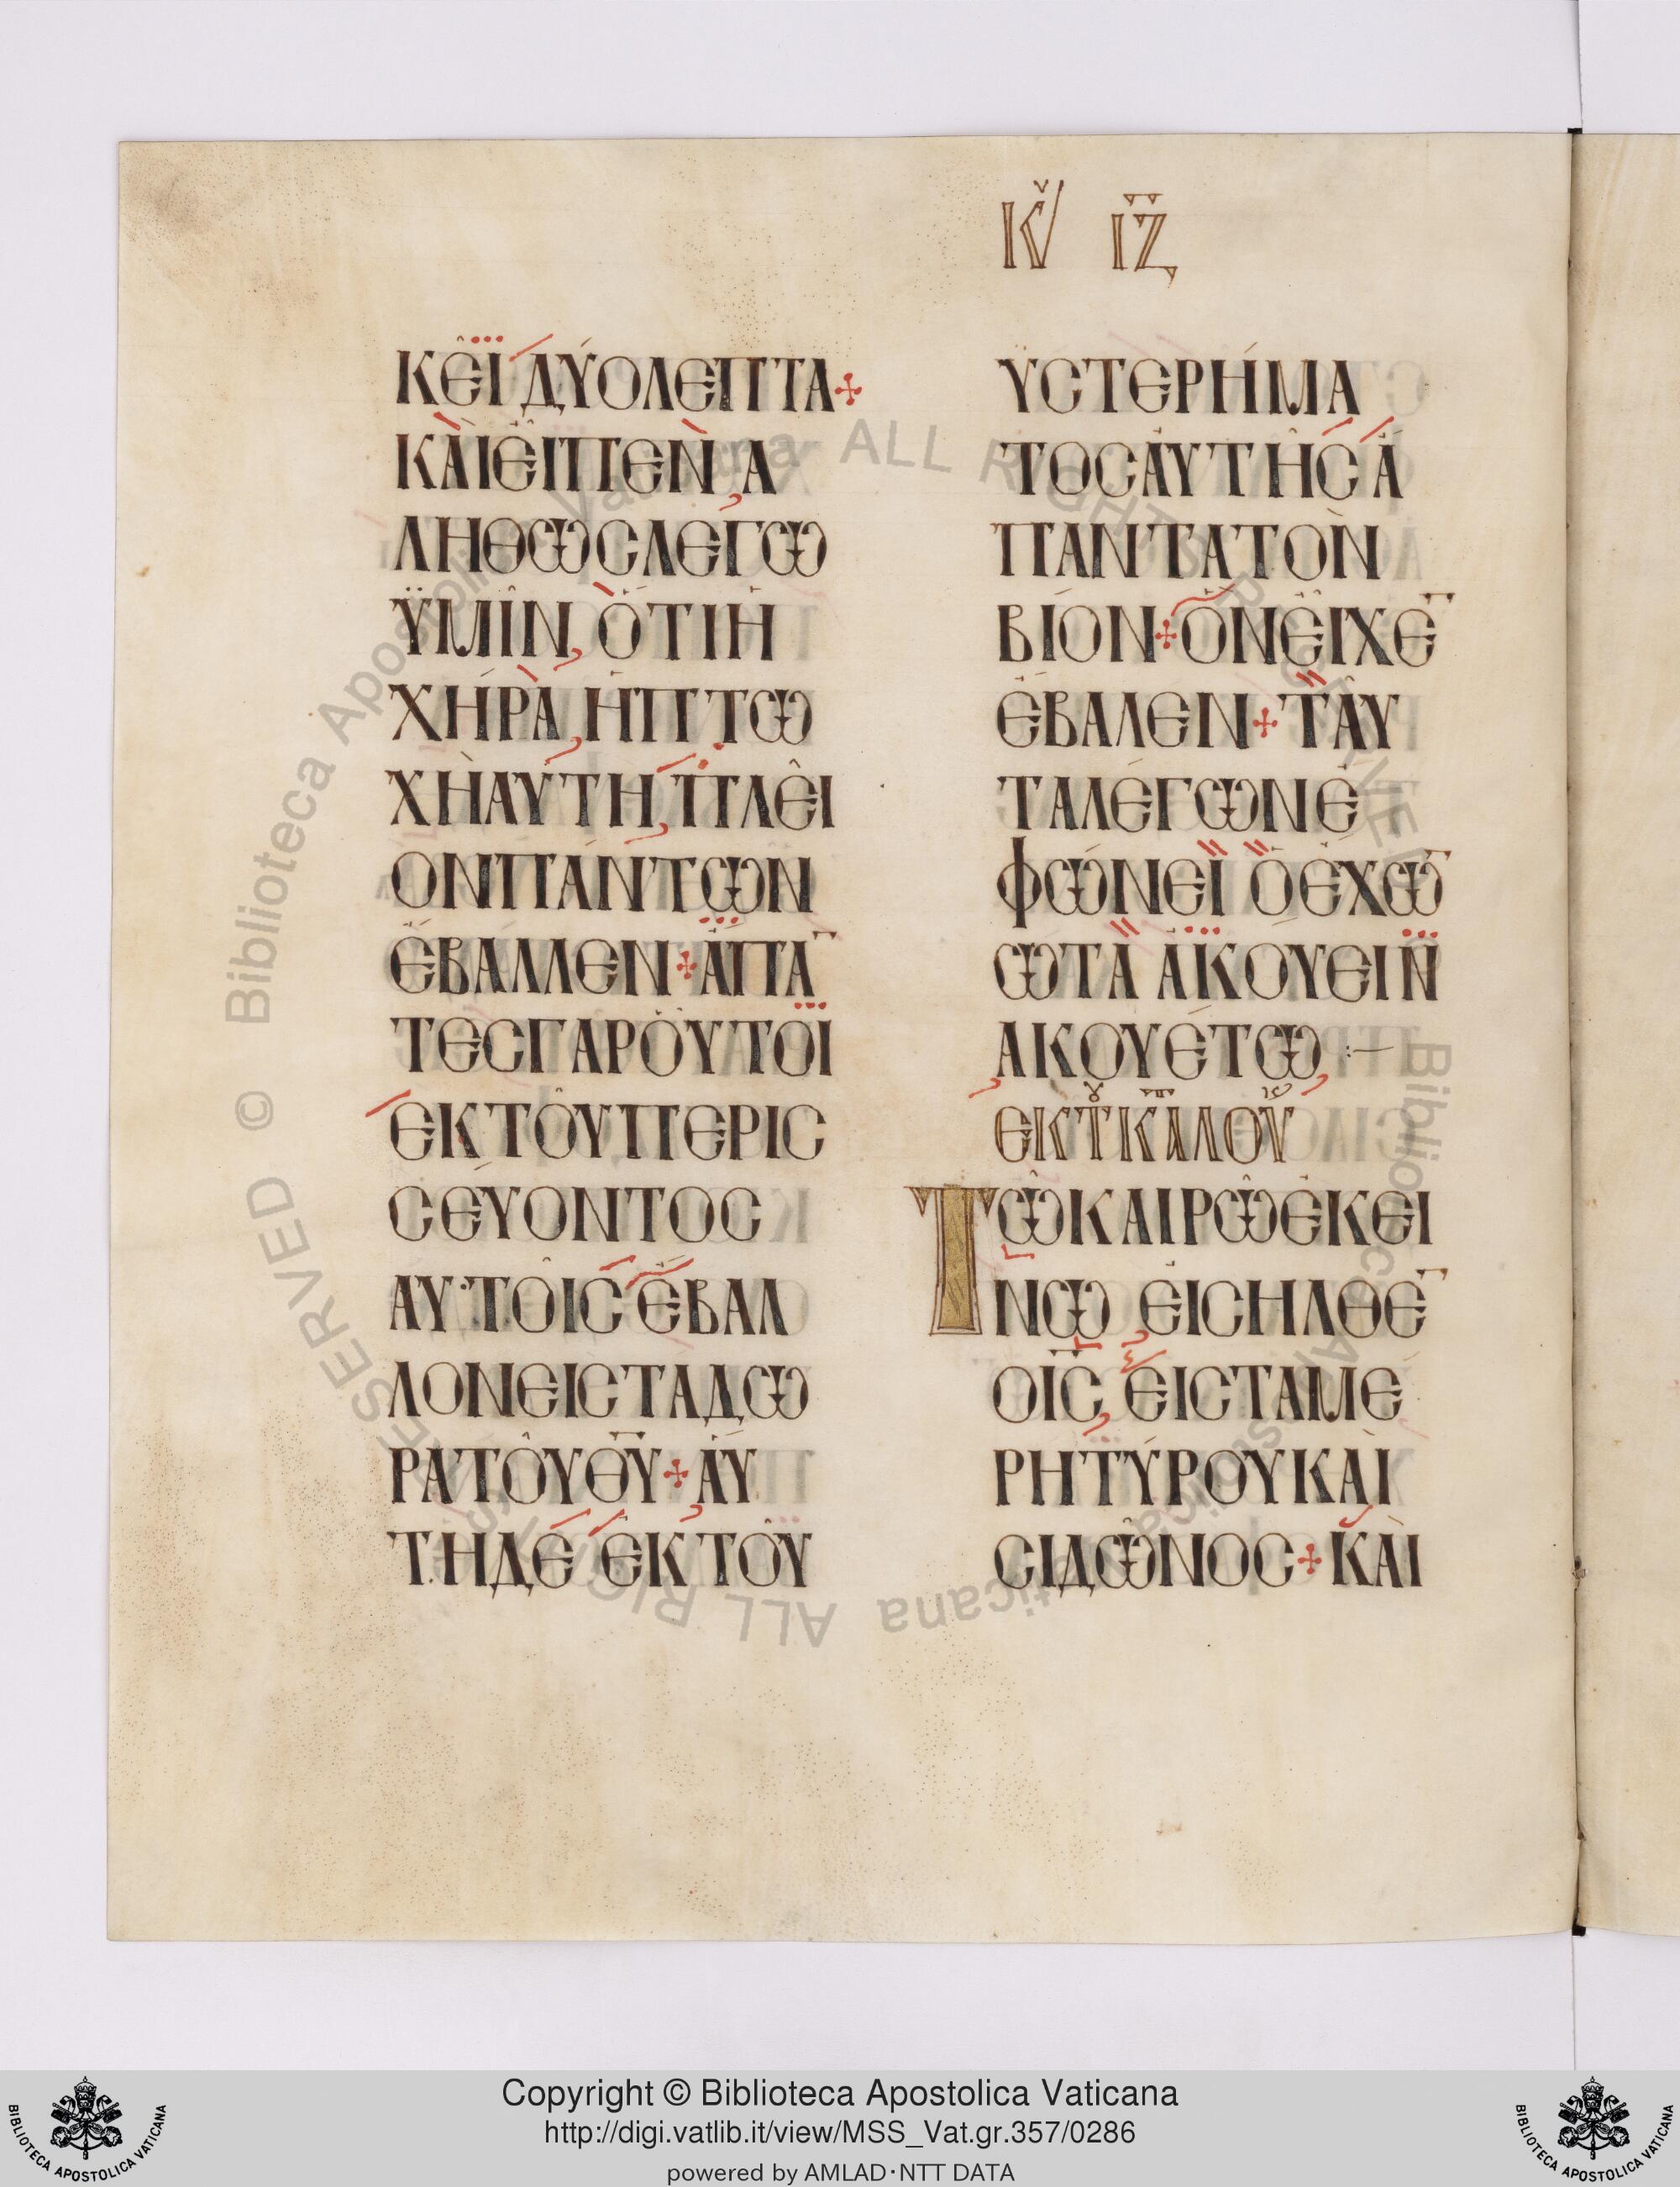 Κυ ΙΖ
ΚΕΙ ΔΥΟ ΛΕΠΤΑ
ΚΑΙ ΕΙΠΕΝ, Α
ΛΗΘΩΣ ΛΕΓΩ
ΥΜΙΝ, ΟΤΙ Η
ΧΗΡΑ, Η ΠΤΩ
ΧΗ ΑΥΤΗ, ΠΛΕΙ
ΟΝ ΠΑΝΤΩΝ
ΕΒΑΛΛΕΝ + ΑΠΑ̅
ΤΕΣ ΓΑΡ ΟΥΤΟΙ
ΕΚ ΤΟΥ ΠΕΡΙΣ
ΣΕΥΟΝΤΟΣ
ΑΥΤΟΙΣ ΕΒΑΛ
ΛΟΝ ΕΙΣ ΤΑ ΔΩ
ΡΑ ΤΟΥ ΘΥ̅ + ΑΥ
ΤΗ ΔΕ ΕΚ ΤΟΥ
ΥΣΤΕΡΗΜΑ
ΤΟΣ ΑΥΤΗΣ Α
ΠΑΝΤΑ ΤΟΝ
ΒΙΟΝ + ΟΝ ΕΙΧΕ̅
ΕΒΑΛΕΝ + ΤΑΥ
ΤΑ ΛΕΓΩΝ Ε
ΦΩΝΕΙ Ο ΕΧΩ̅
ΩΤΑ ΑΚΟΥΕΙΝ
ΑΚΟΥΕΤΩ, :—
ΕΚ Τ Κ Α ΛΟΥ
ΤΩ ΚΑΙΡΩ ΕΚΕΙ
ΝΩ, ΕΙΣΗΛΘΕ̅
Ο ΙΣ̅, ΕΙΣ ΤΑ ΜΕ
ΡΗ ΤΥΡΟΥ ΚΑΙ
ΣΙΔΩΝΟΣ + ΚΑΙ
Biblioteca Apostolica Vaticana ALL RIGHTS RESERVED ©
Copyright © Biblioteca Apostolica Vaticana
http://digi.vatlib.it/view/MSS_Vat.gr.357/0286
powered by AMLAD·NTT DATA
BIBLIOTECA APOSTOLICA VATICANA
BIBLIOTECA APOSTOLICA VATICANA